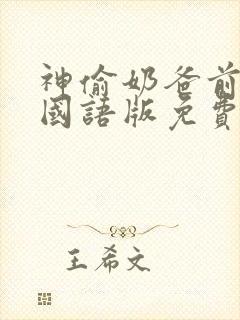 神偷奶爸前
國語版免費
王希文